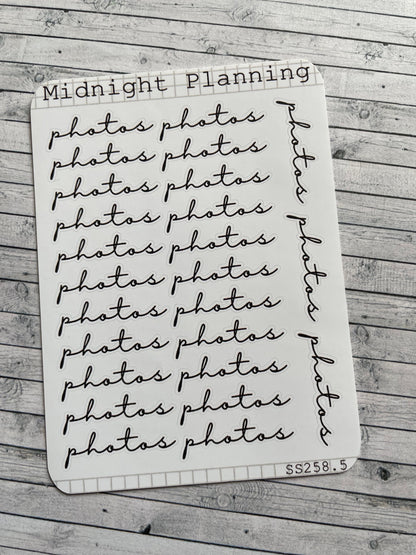 Midnight Planning
photos photos
photos photos
photos photos
photos photos
photos photos
photos photos
photos photos
photos photos
photos photos
photos photos
photos photos
photos photos photos
SS258.5